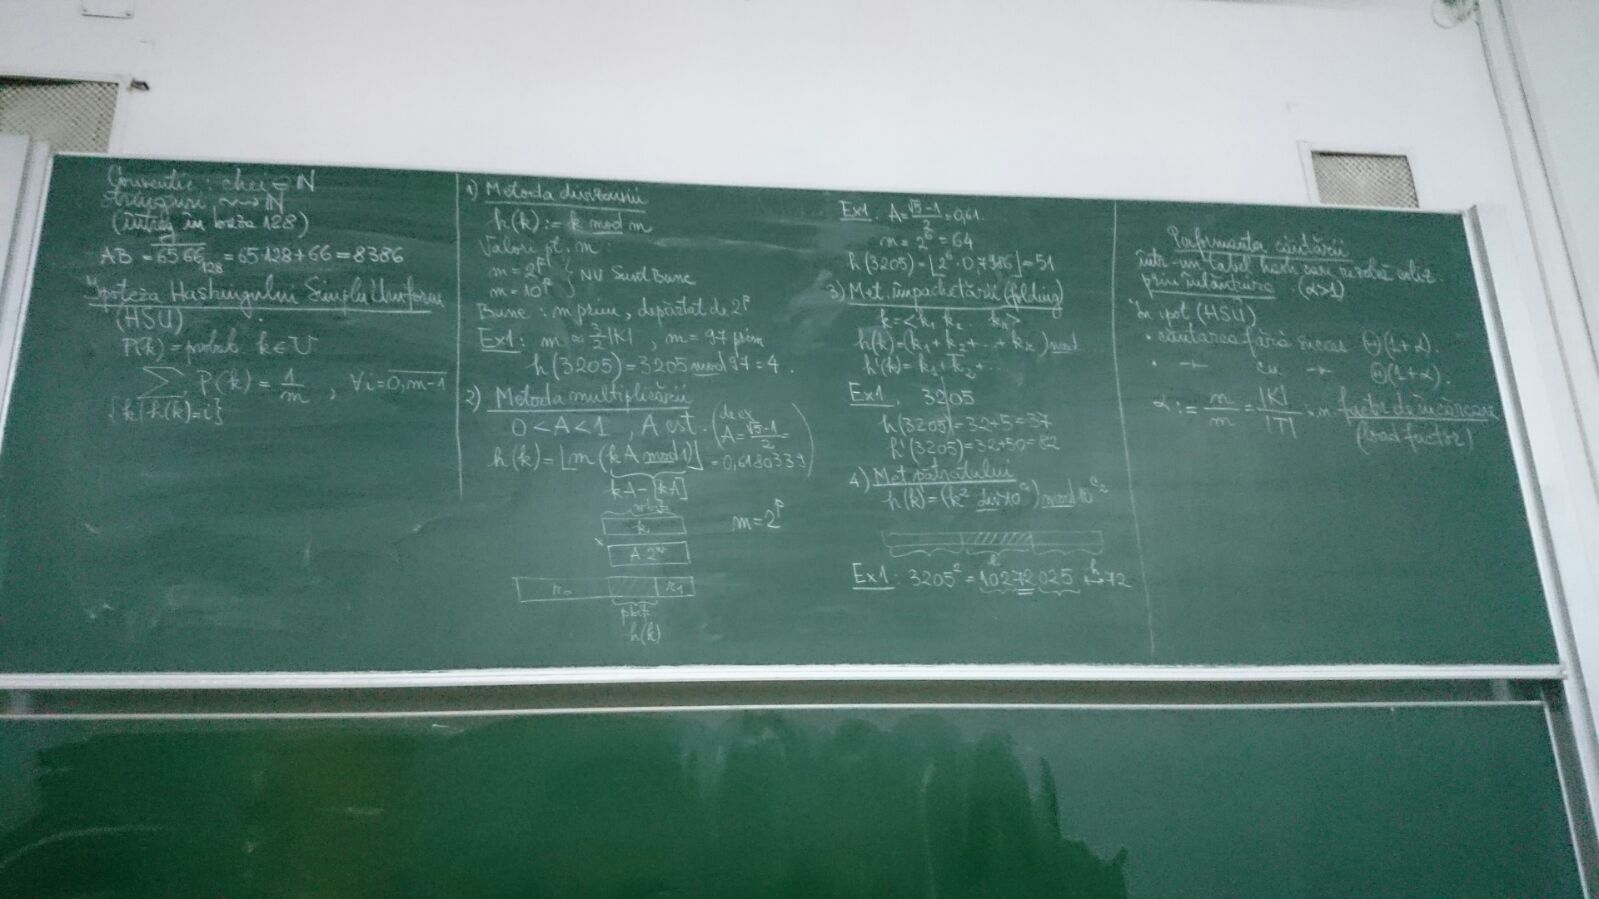 Convenție: chei ∈ ℕ
stringuri ⟿ ℕ
(întreg în baza 128)
AB = 6566₁₂₈ = 65·128+66 = 8386
Ipoteza Hashingului Simplu Uniform
(HSU)
P(k) = probab k∈U
∑ P(k) = 1/m , ∀i=0,m-1
{k|h(k)=i}
1) Metoda diviziunii
h(k) := k mod m
Valori pt. m
m = 2^p
m = 10^p } NU Sunt Bune
Bune: m prim, depărtat de 2^p
Ex1: m ≈ |K| , m = 97 prim
h(3205) = 3205 mod 97 = 4.
2) Metoda multiplicării
0 < A < 1 , A cst. (de ex A = (√5-1)/2 = 0,6180339)
h(k) = ⌊m (kA mod 1)⌋
kA - ⌊kA⌋
k
m = 2^p
× A 2^w
r₀ r₁
p biți
h(k)
Ex1: A = (√5-1)/2 = 0,61.
m = 2^6 = 64
h(3205) = ⌊2^6 · 0,7986⌋ = 51
3) Met. împachetării (folding)
k = <k₁ k₂ ... >
h(k) = (k₁ + k₂ + ... + ) mod
h'(k) = k₁ + k₂ + ...
Ex1, 3205
h(3205) = 32+5 = 37
h'(3205) = 32+50 = 82
4) Met pătratului
h(k) = (k² div 10^c₁) mod 10^c₂
Ex1: 3205² = 10272025 ↦ʰ 72
Performanța căutării
într-un tabel hash care rezolvă coliz.
prin înlănțuire (α>1)
În ipot (HSU)
• căutarea fără succes Θ(1+α).
• —〃— cu —〃— Θ(1+α).
α := n/m = |K|/|T| factor de încărcare
(load factor)